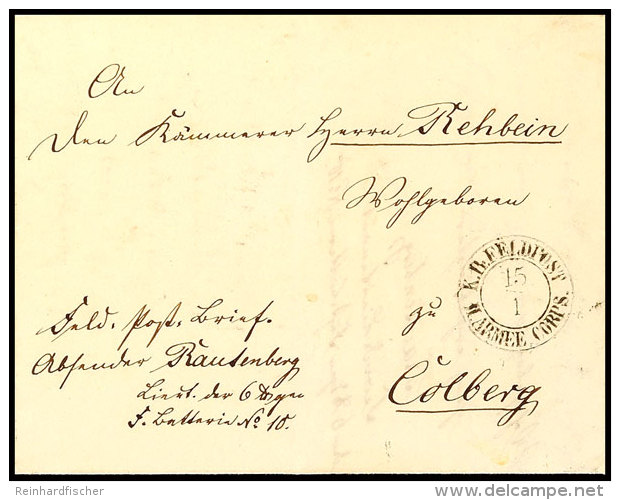 An
den Kämmerer Herrn Rehbein
Wohlgeboren
K.P. FELDPOST
15
1
II. ARMEE CORPS.
zu
Colberg
Feld. Post. Brief.
Absender Rautenberg
Lieut. der 6
F. Batterie No 10.
Reinhardfischer
www.delcampe.net